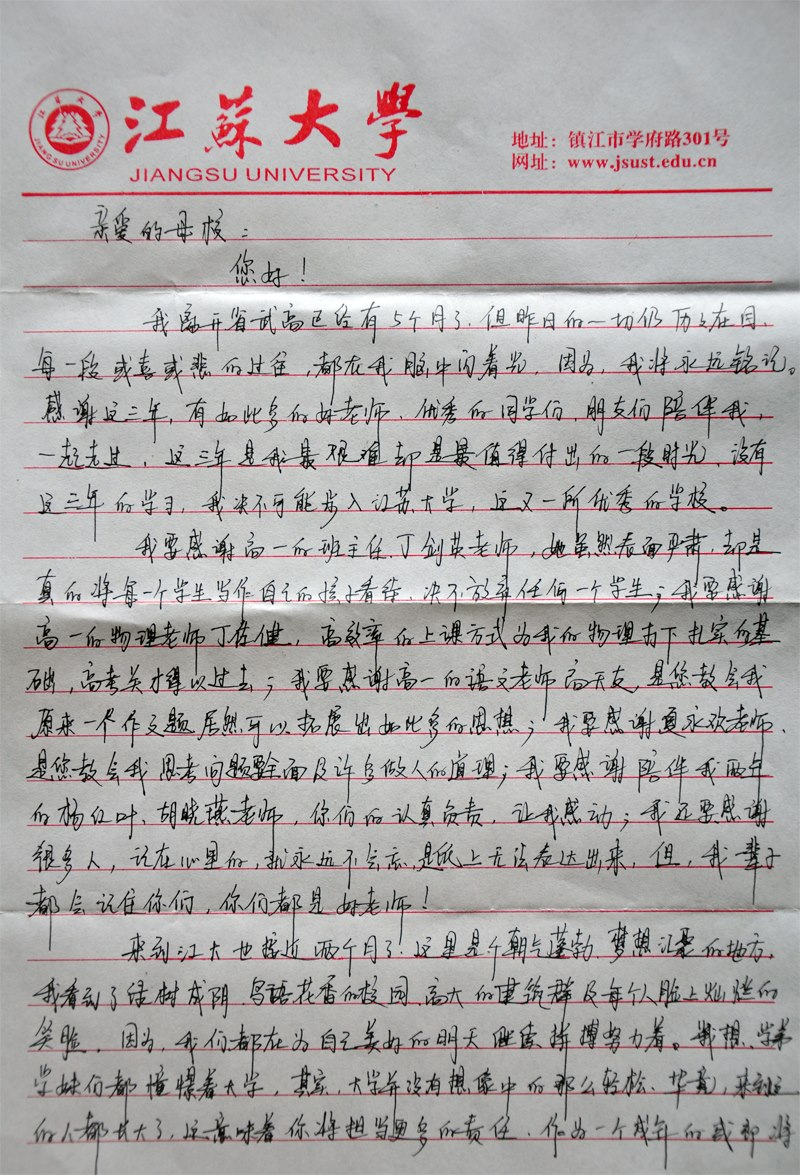 江蘇大學
JIANGSU UNIVERSITY
江苏大学
JIANGSU UNIVERSITY
地址：镇江市学府路301号
网址：www.jsust.edu.cn
亲爱的母校：
您好！
我离开省武高已经有5个月了，但昨日的一切仍历历在目，
每一段或喜或悲的过往，都在我脑中闪着光，因为，我将永远铭记。
感谢这三年，有如此多的好老师、优秀的同学们，朋友们陪伴我，
一起走过，这三年是我最艰难却是最值得付出的一段时光，没有
这三年的学习，我决不可能步入江苏大学，这又一所优秀的学校。
我要感谢高一的班主任丁剑英老师，她虽然表面严肃，却是
真的将每一个学生当作自己的孩子看待，决不放弃任何一个学生；我要感谢
高一的物理老师丁俊健，高效率的上课方式为我的物理打下扎实的基
础，高考关才得以过去；我要感谢高一的语文老师高天友，是您教会我
原来一个作文题居然可以拓展出如此多的思想；我要感谢夏永欢老师，
是您教会我思考问题要全面及许多做人的道理；我要感谢陪伴我两年
的杨红叶、胡晓燕老师，你们的认真负责，让我感动；我还要感谢
很多人，记在心里的，就永远不会忘，是纸上无法表达出来，但，我一辈子
都会记住你们，你们都是好老师！
来到江大也接近两个月了，这里是个朝气蓬勃、梦想汇聚的地方，
我看到了绿树成阴、鸟语花香的校园，高大的建筑群及每个人脸上灿烂的
笑脸，因为，我们都在为自己美好的明天继续拼搏努力着。我想，学弟
学妹们都憧憬着大学，其实，大学并没有想象中的那么轻松、华丽，来到这
的人都长大了，这意味着你将担当更多的责任，作为一个成年的或即将